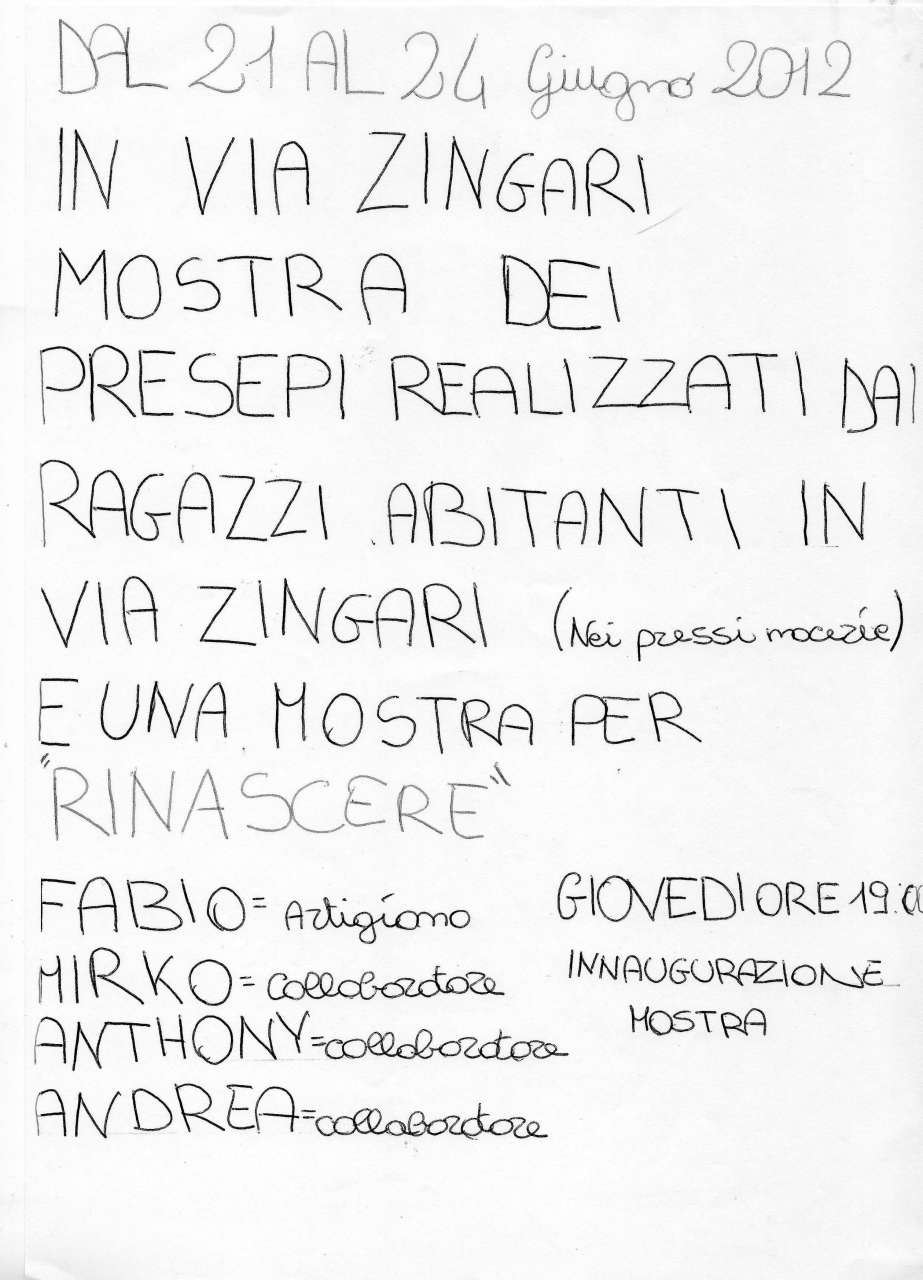 DAL 21 AL 24 Giugno 2012
IN VIA ZINGARI
MOSTRA DEI
PRESEPI REALIZZATI DAI
RAGAZZI ABITANTI IN
VIA ZINGARI (Nei pressi macerie)
E UNA MOSTRA PER
"RINASCERE"
FABIO = Artigiano
MIRKO = collaboratore
ANTHONY = collaboratore
ANDREA = collaboratore
GIOVEDI ORE 19:00
INNAUGURAZIONE
MOSTRA